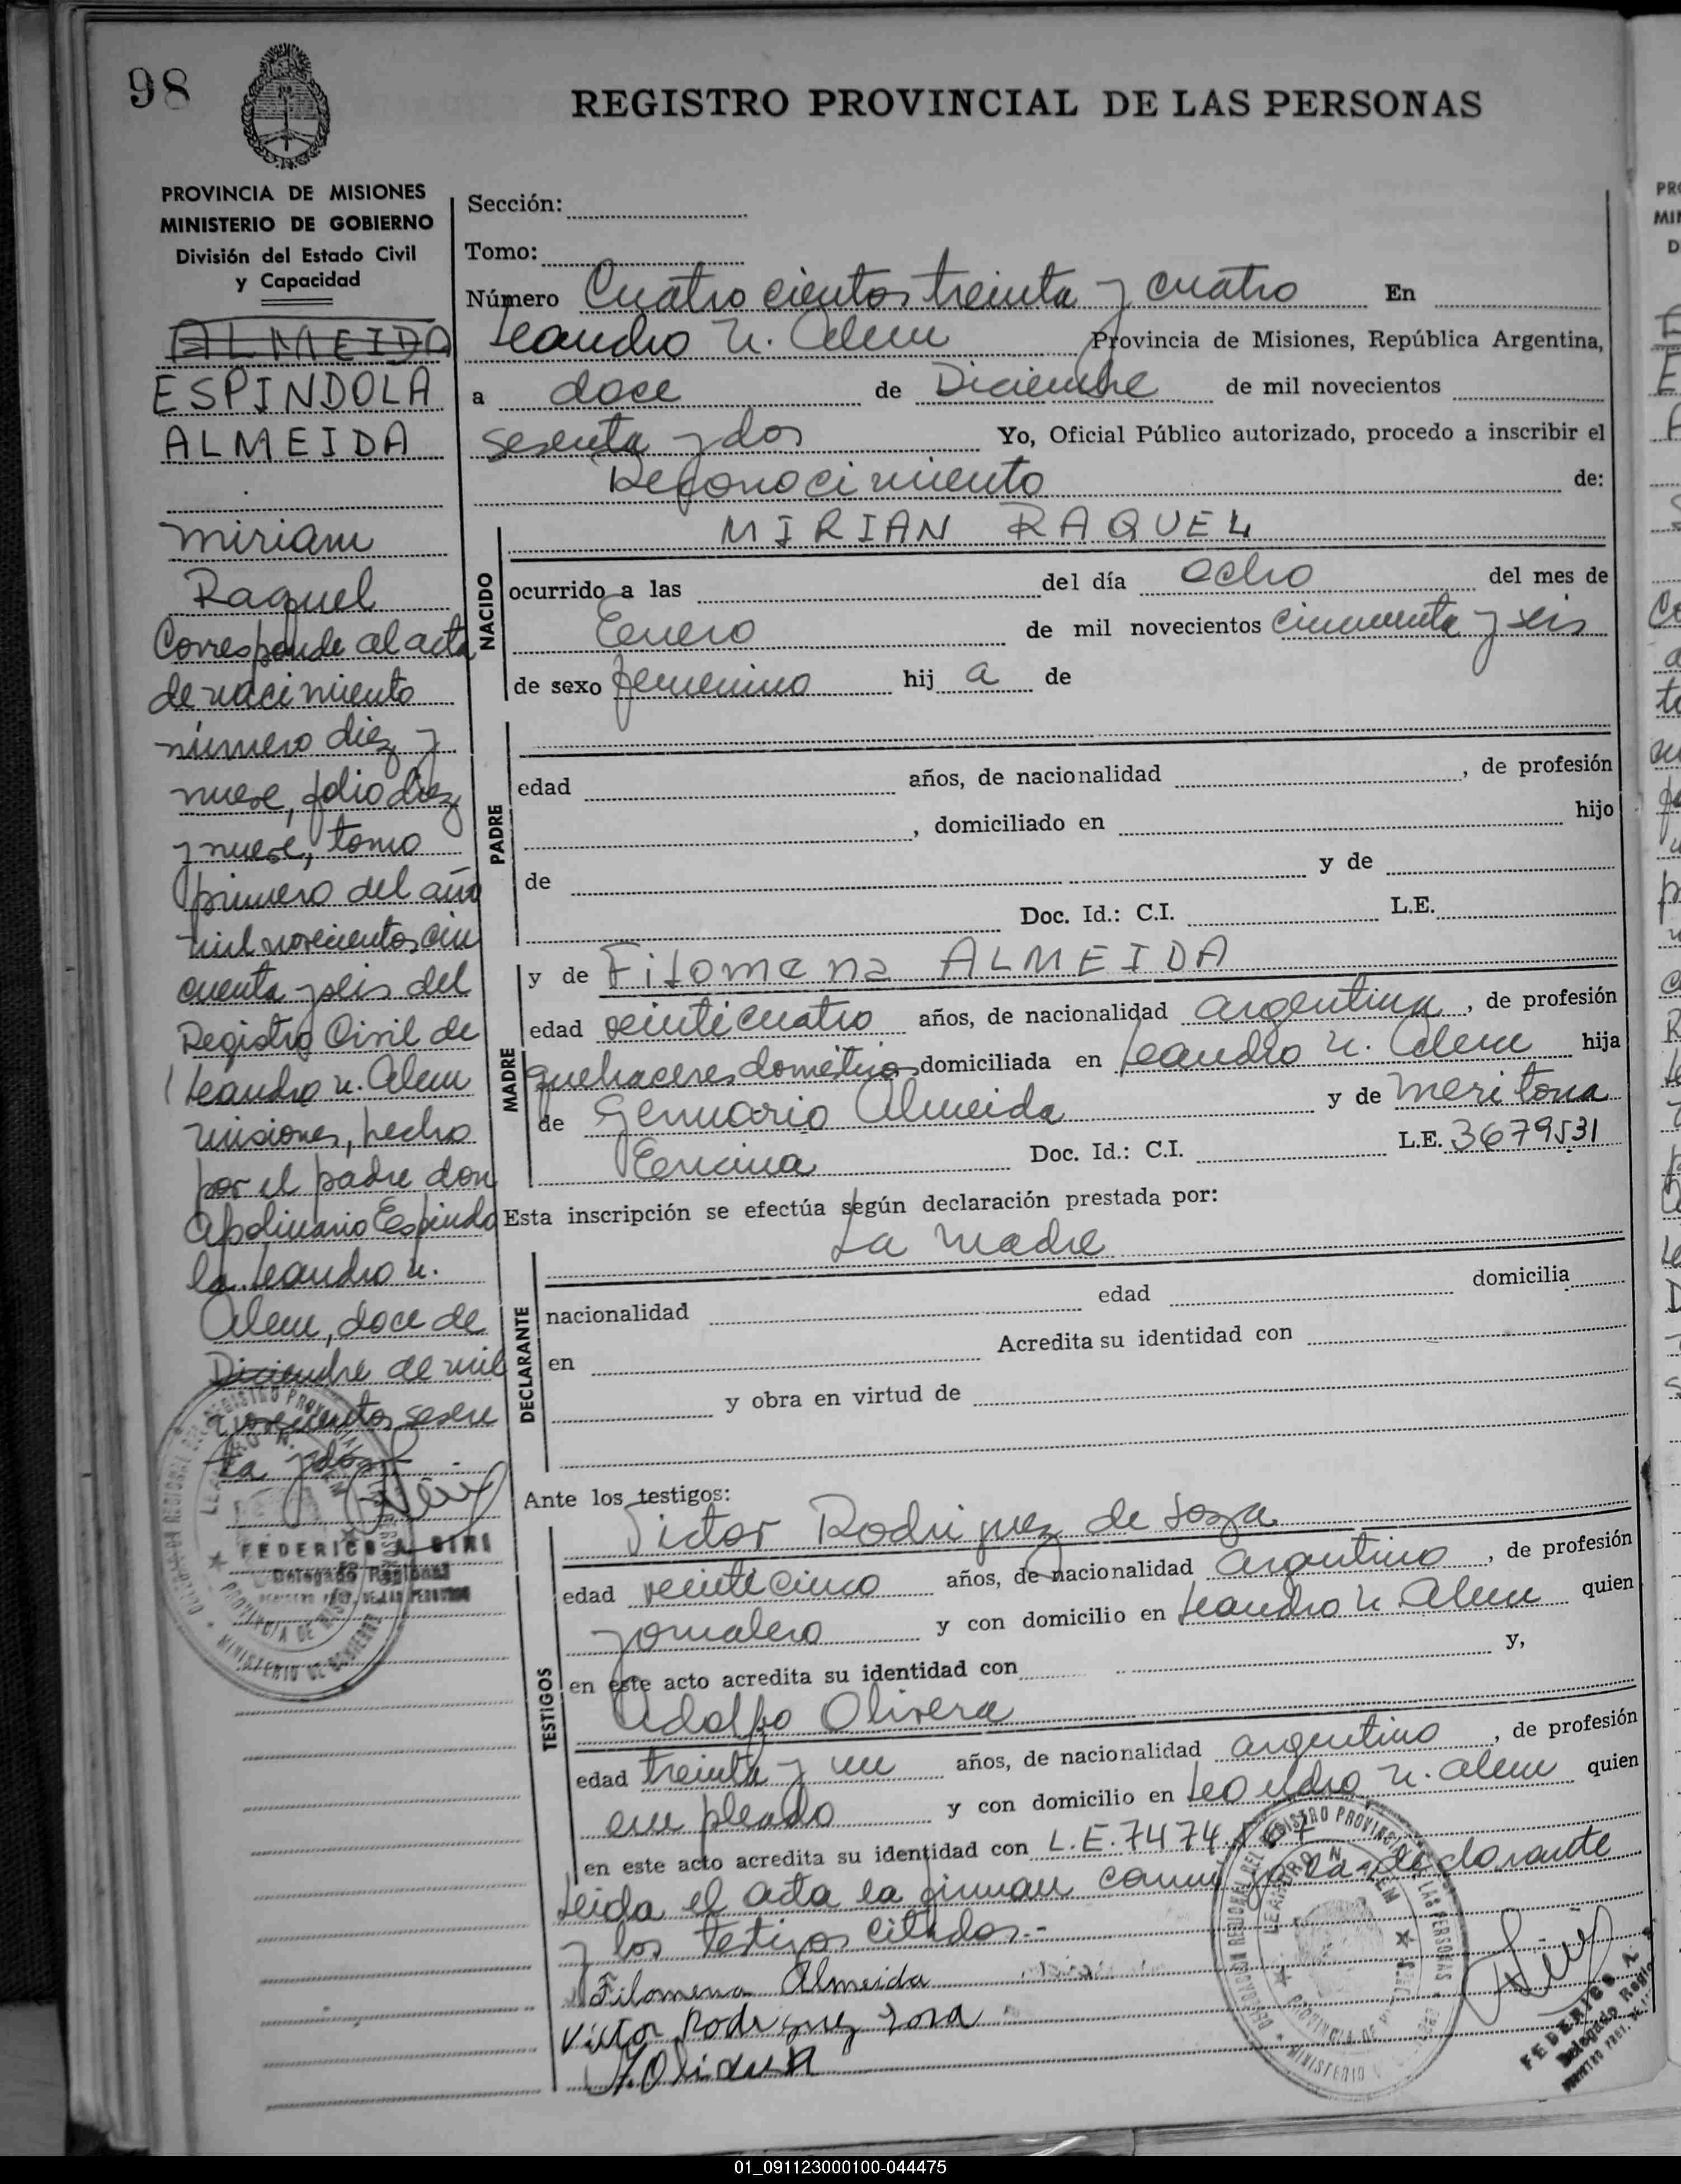 98
REGISTRO PROVINCIAL DE LAS PERSONAS
PROVINCIA DE MISIONES
MINISTERIO DE GOBIERNO
División del Estado Civil
y Capacidad
ALMEIDA
ESPINDOLA
ALMEIDA
Miriam
Raquel
Corresponde al acta
de nacimiento
número diez y
nueve, folio diez
y nueve, tomo
primero del año
mil novecientos cin
cuenta y seis del
Registro Civil de
Leandro N. Alem
Misiones, hecho
por el padre don
Apolinario Espindo
la. Leandro N.
Alem, doce de
Diciembre de mil
novecientos sesen
ta y dos
FEDERICO A.
Delegado Regional
Sección:
Tomo:
Número Cuatrocientos treinta y cuatro En
Leandro N. Alem Provincia de Misiones, República Argentina,
a doce de Diciembre de mil novecientos
sesenta y dos Yo, Oficial Público autorizado, procedo a inscribir el
Reconocimiento de:
NACIDO
MIRIAN RAQUEL
ocurrido a las del día ocho del mes de
Enero de mil novecientos cincuenta y seis
de sexo femenino hij a de
PADRE
edad años, de nacionalidad , de profesión
, domiciliado en hijo
de y de
Doc. Id.: C.I. L.E.
MADRE
y de Filomena ALMEIDA
edad veinticuatro años, de nacionalidad argentina , de profesión
quehaceres dométicos domiciliada en Leandro N. Alem hija
de Genuario Almeida y de Meritona
Encina Doc. Id.: C.I. L.E. 3679531
Esta inscripción se efectúa según declaración prestada por:
La madre
DECLARANTE
nacionalidad edad domicilia
en Acredita su identidad con
y obra en virtud de
Ante los testigos:
TESTIGOS
Victor Rodriguez de Soza
edad veinticinco años, de nacionalidad argentino , de profesión
jornalero y con domicilio en Leandro N. Alem quien
en este acto acredita su identidad con y,
Adolfo Olivera
edad treinta y un años, de nacionalidad argentino , de profesión
empleado y con domicilio en Leondro N. Alem quien
en este acto acredita su identidad con L.E. 7474
Leida el acta la firman conmigo la declarante
y los testigos citados.-
Filomena Almeida
Victor Rodriguez
A. Olivera
FEDERICO A.
Delegado Regio
01_091123000100-044475